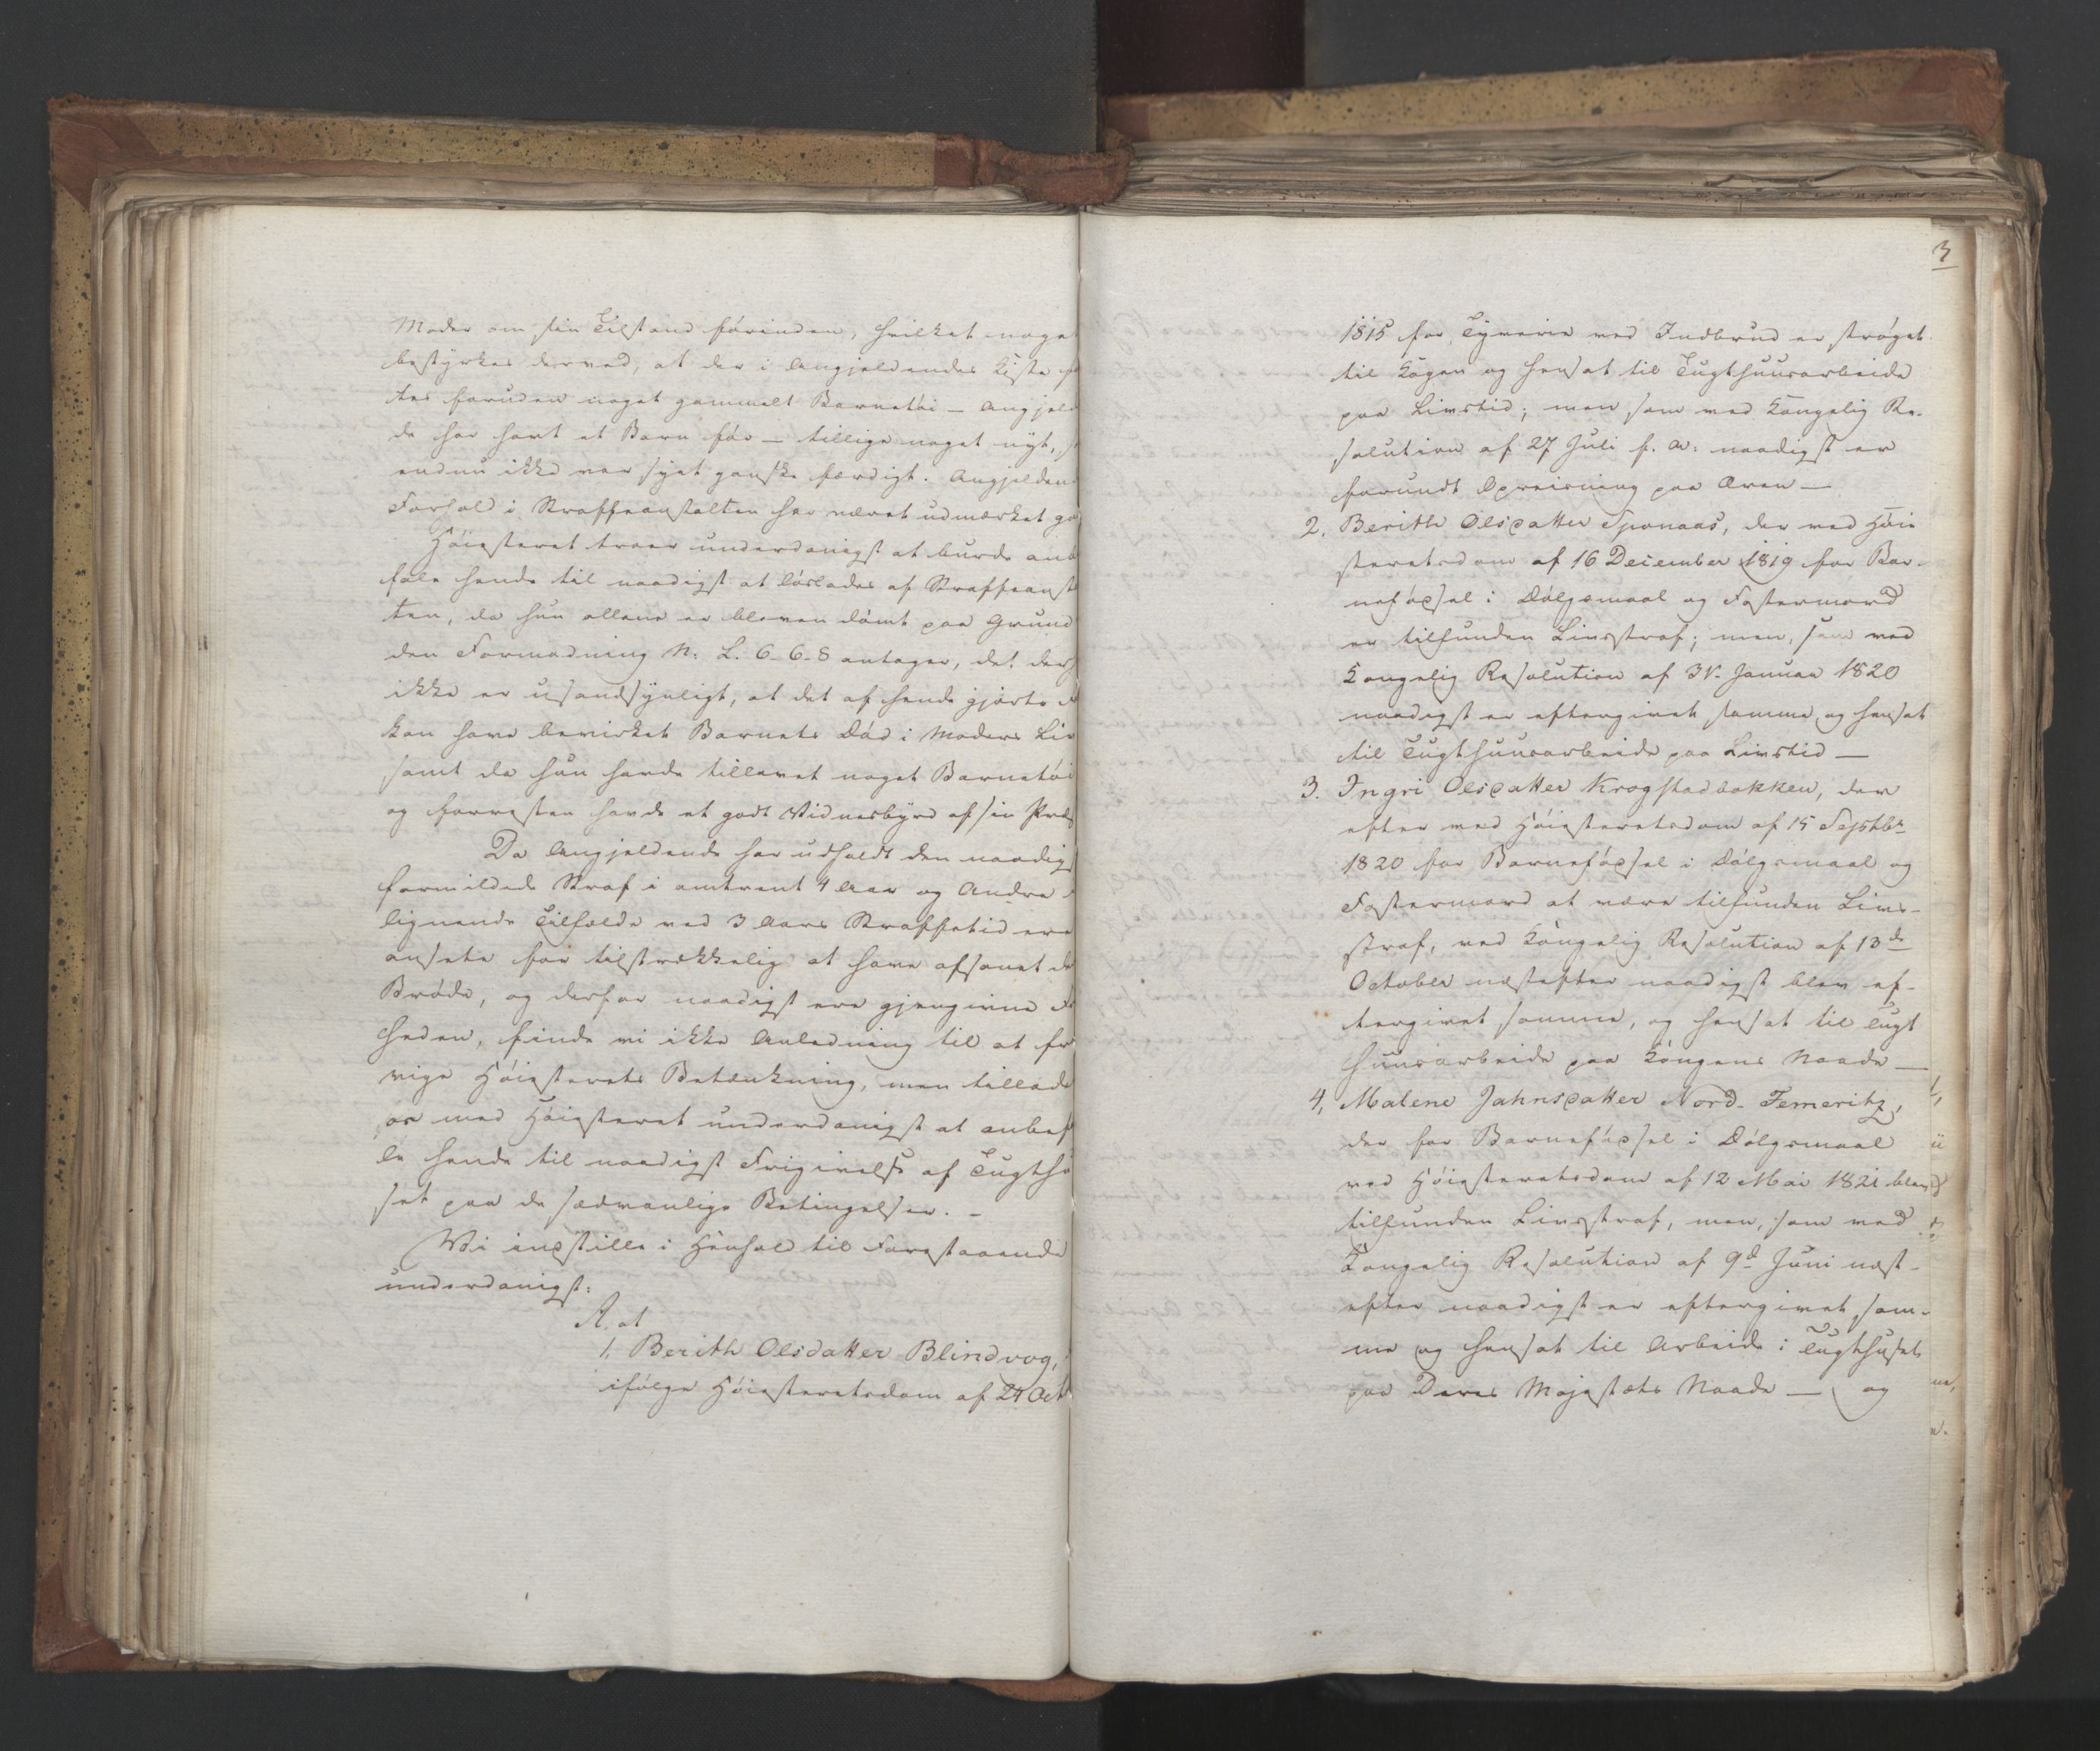 Moder om sin Tilstand forinden, hvilket noget
bestyrkes derved, at der i Angjeldendes Kiste
tes foruden noget gammelt Barnetøi – Angjeld
de har havt et Barn før – tillige noget nyt,
endnu ikke var syet ganske færdigt. Angjelden
Forhold i Straffeanstalten har været udmærket go
Høiesteret troer underdanigst at burde anb
fale hende til naadigst at løslades af Straffeanst
ten, da hun allene er bleven dømt paa Grund
den Formodning N: L. 6-6-8 antager, det der
ikke er usandsynligt, at det af hende gjorte
kan have bevirket Barnets Død i Moders Liv
samt da hun havde tillavet noget Barnetøi
og forresten havde et godt Vidnesbyrd af sin Præs
Da Angjeldende har udholdt den naadig
formildede Straf i omtrent 4 Aar og Andre
lignende Tilfælde ved 3 Aars Straffetid ere
ansete for tilstrækkelig at have afsonet de
Brøde, og derfor naadigst ere gjengivne
heden, finde vi ikke Anledning til at fra
vige Høiesterets Betænkning, men tillade
os med Høiesteret underdanigst at anbef
le hende til naadigst Frigivelse af Tugthu
set paa de sædvanlige Betingelser. –
Vi indstille i Henhold til Forestaaende
underdanigst:
A. at
1, Berith Olsdatter Blindvog,
ifølge Høiesteretsdom af 24 Oct
3
1815 for Tyverie ved Indbrud er strøget
til Kagen og hensat til Tugthuusarbeide
paa Livstid; men som ved Kongelig Re-
solution af 27 Juli f. A: naadigst er
forundt Opreisning paa Æren –
2, Berith Olsdatter Sponaas, der ved Høie
steretsdom af 16 December 1819 for Bar-
nefødsel i Dølgsmaal og Fostermord
er tilfunden Livsstraf; men, som ved
Kongelig Resolution af 31. Januar 1820
naadigst er eftergivet samme, og hensat
til Tugthuusarbeide paa Livstid –
3. Ingri Olsdatter Krogstadbakken, der
efter ved Høiesteretsdom af 15 Septbr
1820 for Barnefødsel i Dølgsmaal og
Fostermord at være tilfunden Livs-
straf, ved Kongelig Resolution af 13de
October næstefter naadigst blev ef-
tergivet samme, og hensat til Tugt
huusarbeide paa Kongens Naade –
4, Malene Jahnsdatter Nord-Femeritz,
der for Barnefødsel i Dølgsmaal
ved Høiesteretsdom af 12 Mai 1821 blev
tilfunden Livsstraf, men, som ved
Kongelig Resolution af 9d Juni næst-
efter naadigst er eftergivet sam-
me og hensat til Arbeide i Tugthuset
paa Deres Majestæts Naade – og